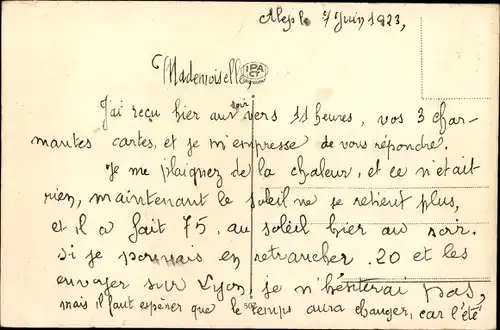 Alep le 7 Juin 1923,
Mademoiselle,
IPA CT
J'ai reçu hier au soir vers 11 heures, vos 3 char-
mantes cartes, et je m'empresse de vous répondre.
Je me plaignez de la chaleur, et ce n'était
rien, maintenant le soleil ne se retient plus,
et il a fait 75, au soleil hier au soir.
Si je pouvais en retrancher 20 et les
envoyer sur Lyon, je n'hésiterai pas,
mais il faut espérer que le temps aura changer, car l'été